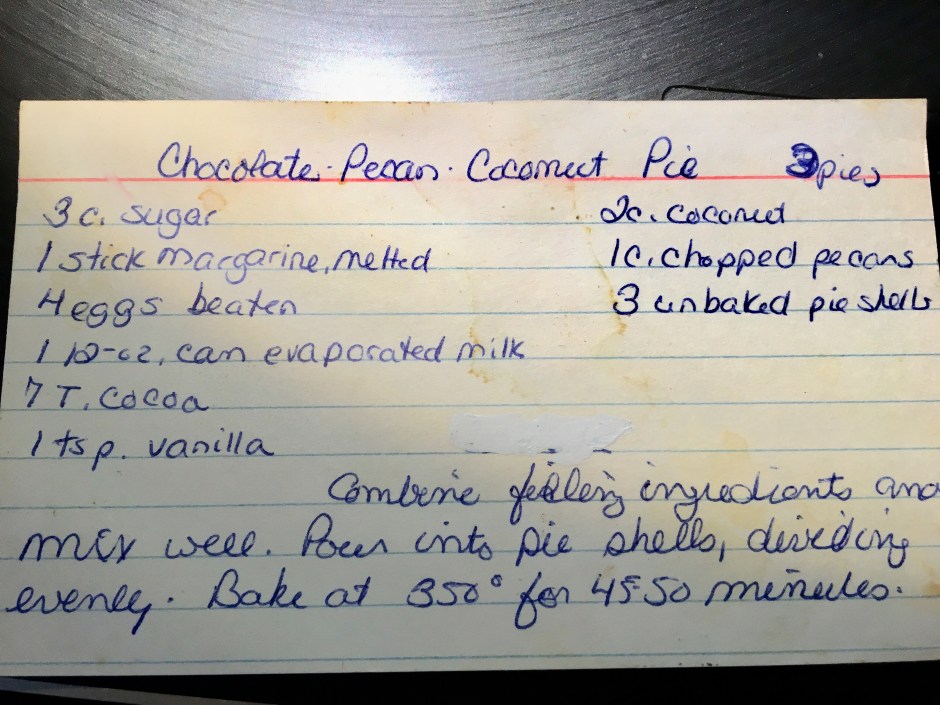 Chocolate-Pecan-Coconut Pie 3 pies
3 c. sugar
1 stick margarine, melted
4 eggs beaten
1 12-oz. can evaporated milk
7 T. cocoa
1 tsp. vanilla
2c. coconut
1c. chopped pecans
3 unbaked pie shells
Combine filling ingredients and
mix well. Pour into pie shells, dividing
evenly. Bake at 350° for 45-50 minutes.